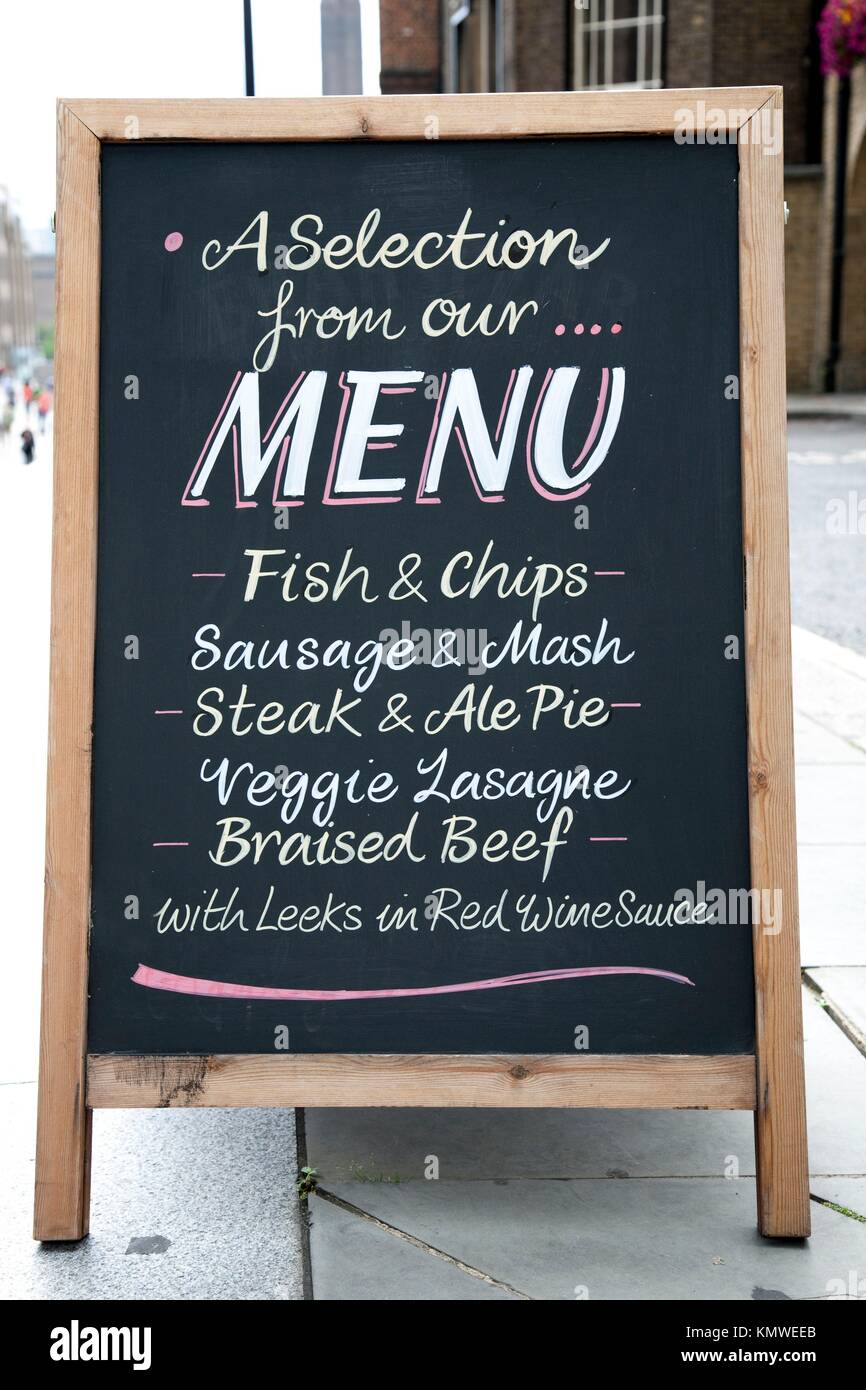 • A Selection
from our ....
MENU
- Fish & Chips -
Sausage & Mash
- Steak & Ale Pie -
Veggie Lasagne
- Braised Beef -
with Leeks in Red Wine Sauce
alamy
alamy
Image ID: KMWEEB
www.alamy.com